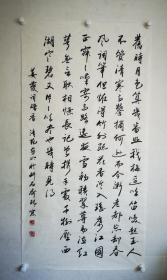 舊時月色算幾番照我梅邊吹笛喚起玉人
不管清寒與攀摘何遜而今漸老都忘却春
風詞筆但怪得竹外疏花香冷入瑤席江國
正寂寂嘆寄與路遥夜雪初積翠尊易泣紅
萼無言耿相憶長記曾攜手處千樹壓西
湖寒碧又片片吹盡也幾時見得
姜夔詞暗香